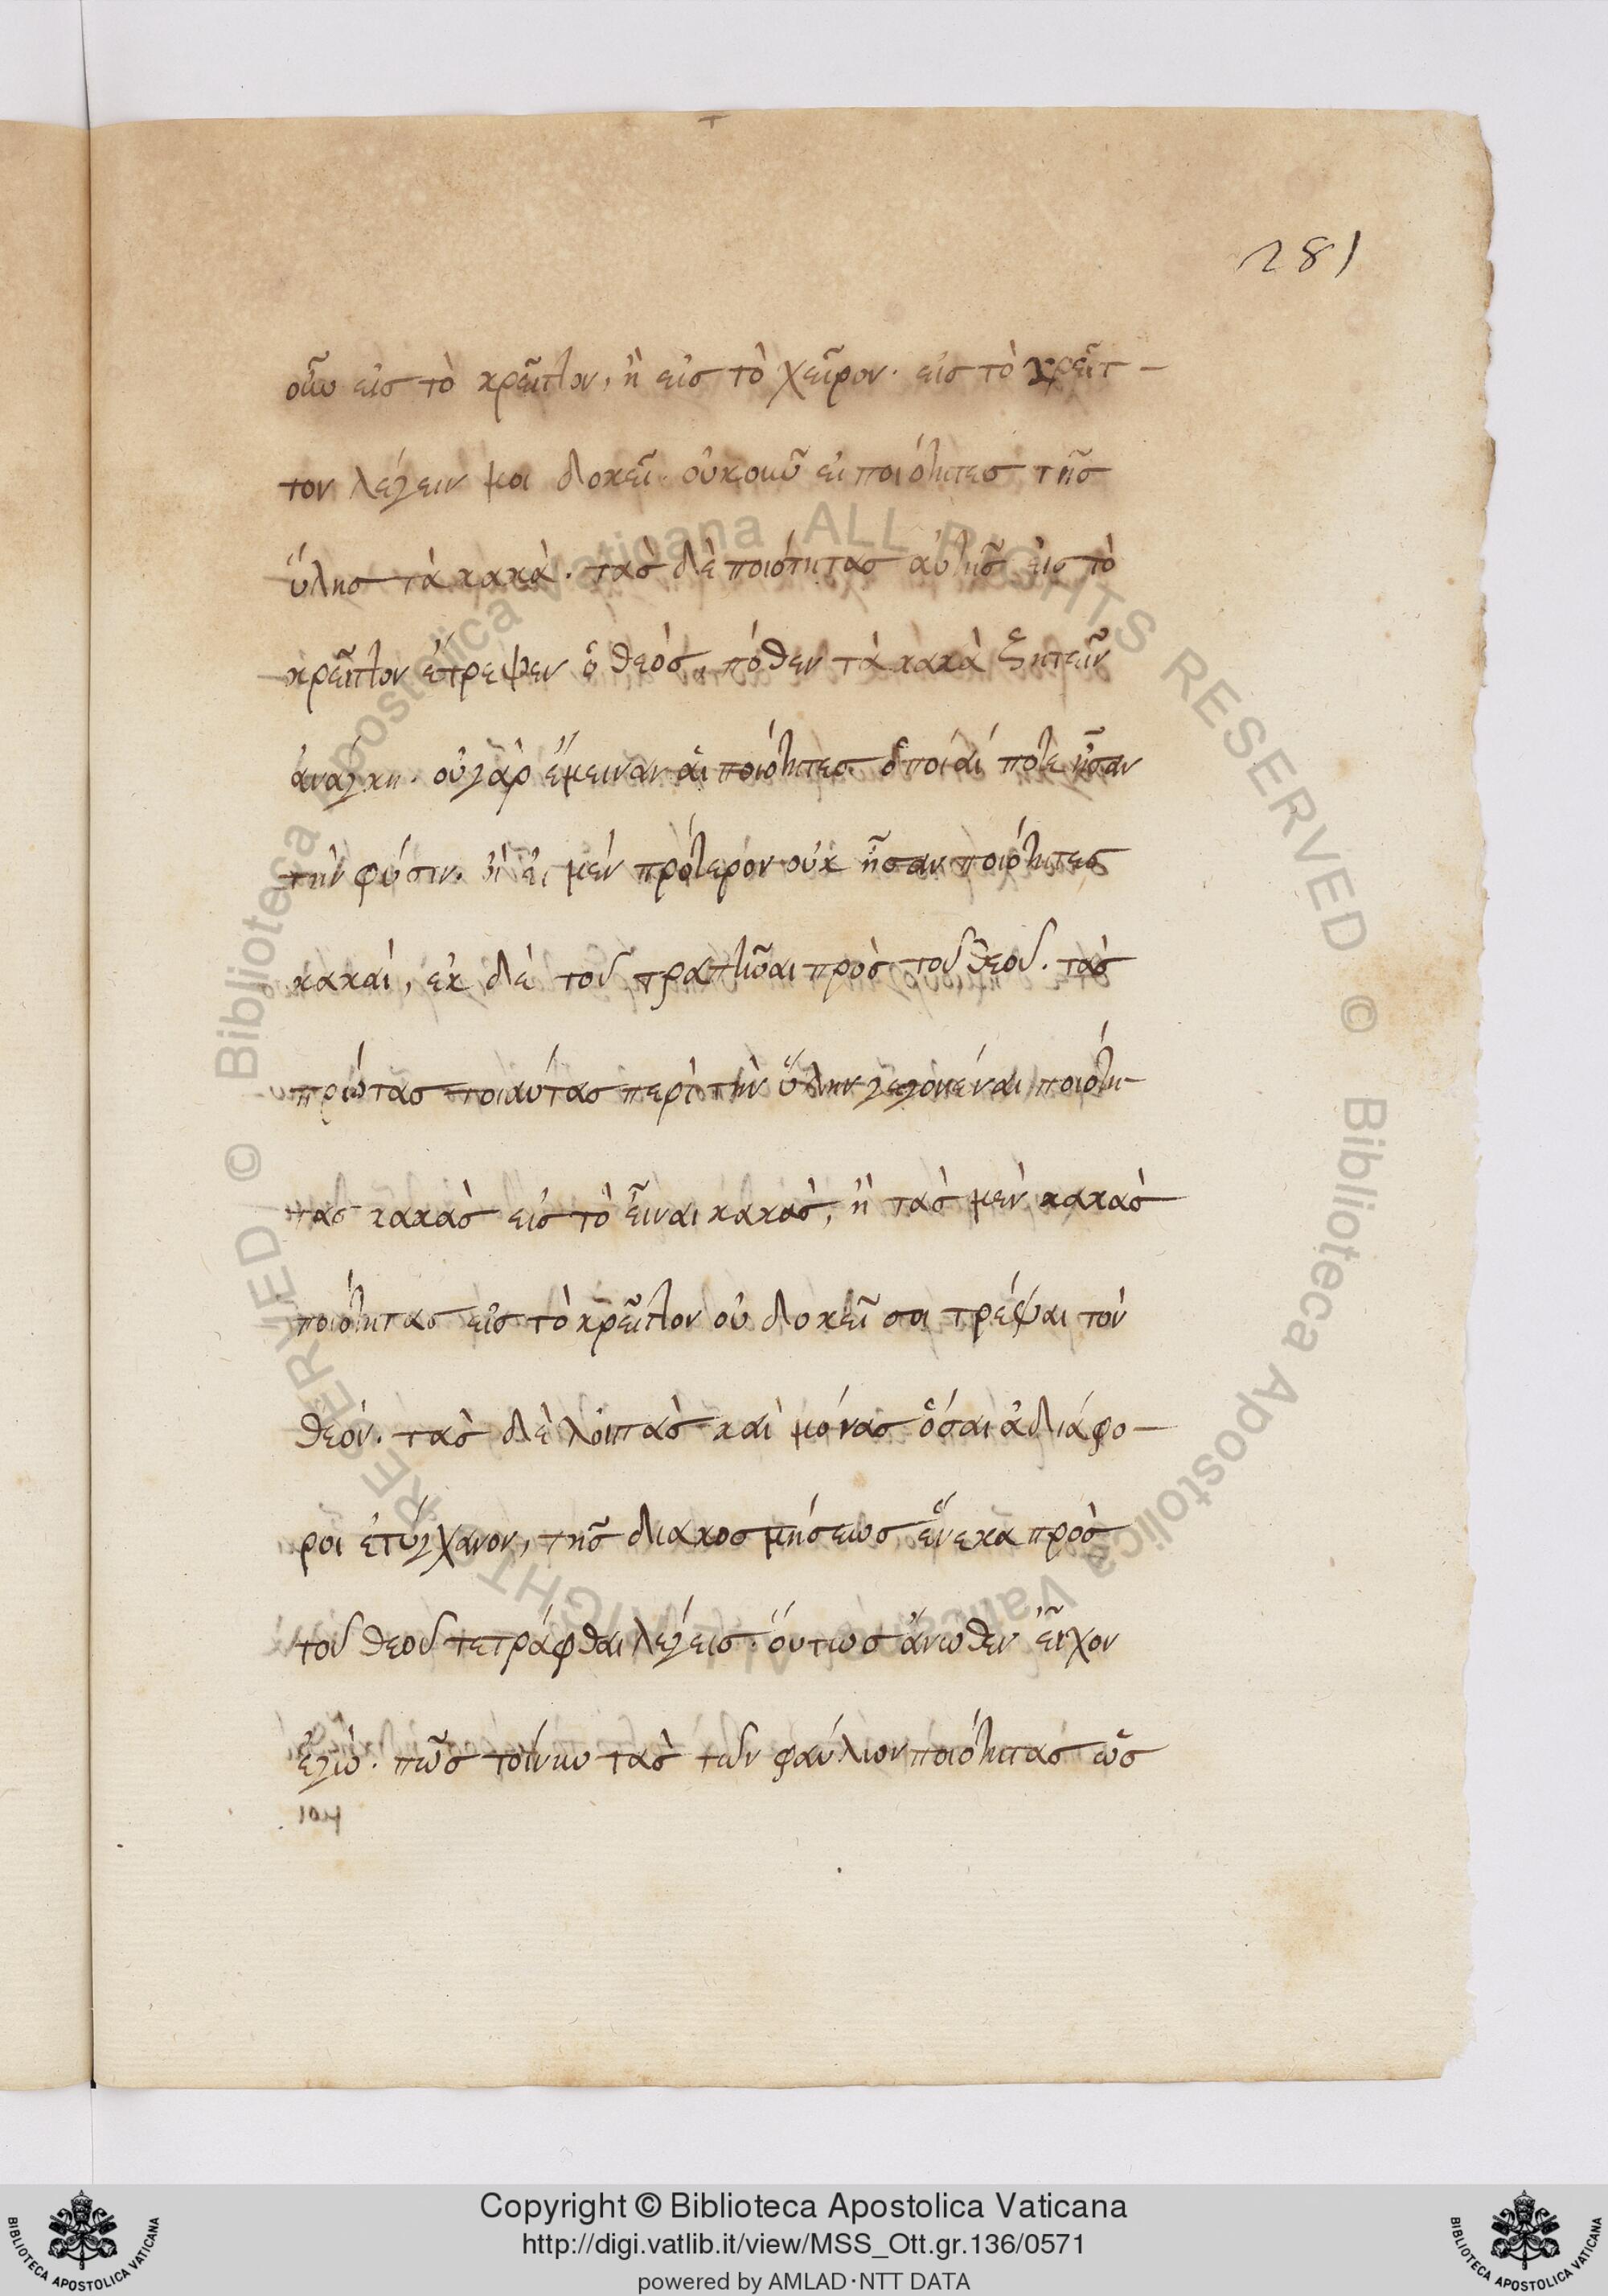 281
οὖν εἰς τὸ κρεῖττον, ἢ εἰς τὸ χεῖρον. εἰς τὸ κρεῖτ-
τον λέγειν μοι δοκεῖ. οὐκοῦν εἰ ποιότητες τῆς
ὕλης τὰ κακὰ. τὰς δὲ ποιότητας αὐτῆς εἰς τὸ
κρεῖττον ἔτρεψεν ὁ θεός, πόθεν τὰ κακὰ ζητεῖν
ἀνάγκη. οὐ γὰρ ἔμειναν αἱ ποιότητες ὁποῖαί ποτε ἦσαν
τὴν φύσιν. ἢ εἰ μὲν πρότερον οὐκ ἦσαν ποιότητες
κακαί, ἐκ δὲ τοῦ τραπῆναι πρὸς τοῦ θεοῦ. τὰς
πρώτας τοιαύτας περὶ τὴν ὕλην γεγονέναι ποιότη-
τας κακὰς εἰς τὸ εἶναι κακὰς, ἢ τὰς μὲν κακὰς
ποιότητας εἰς τὸ κρεῖττον οὐ δοκεῖ σοι τρέψαι τὸν
θεόν. τὰς δὲ λοιπὰς καὶ μόνας ὅσαι ἀδιάφο-
ροι ἐτύγχανον, τῆς διακοσμήσεως ἕνεκα πρὸς
τοῦ θεοῦ τετράφθαι λέγεις. οὕτως ἄνωθεν εἶχον
ἐγώ. πῶς τοίνυν τὰς τῶν φαύλων ποιότητας ὡς
Copyright © Biblioteca Apostolica Vaticana
http://digi.vatlib.it/view/MSS_Ott.gr.136/0571
powered by AMLAD·NTT DATA
BIBLIOTECA APOSTOLICA VATICANA
BIBLIOTECA APOSTOLICA VATICANA
© Biblioteca Apostolica Vaticana ALL RIGHTS RESERVED
© Biblioteca Apostolica Vaticana ALL RIGHTS RESERVED